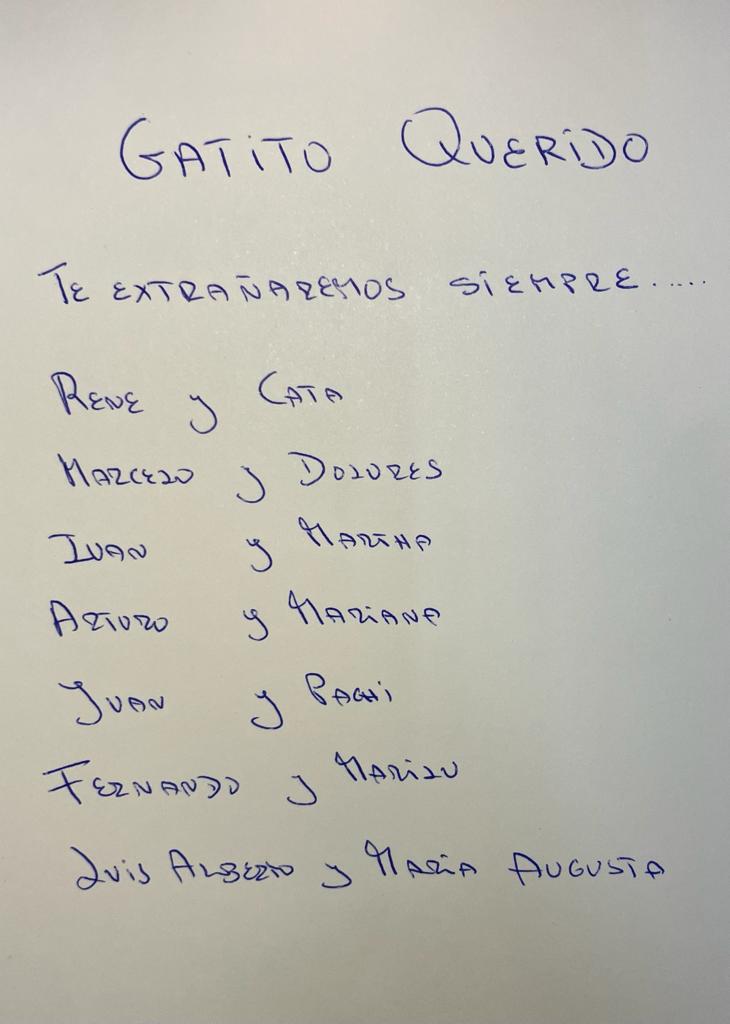 GATITO QUERIDO
TE EXTRAÑAREMOS SIEMPRE.....
RENE y CATA
MARCELO y DOLORES
IVAN y MARTHA
ARTURO y MARIANA
JUAN y PACHI
FERNANDO y MARILU
LUIS ALBERTO y MARÍA AUGUSTA